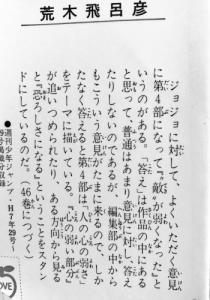 荒木飛呂彦
ジョジョに対して、よくいただく意見
に第4部になって『敵が弱くなった』と
いうのがある。「答え」は作品の中にある
と思って、普通はあまり意見に対し答え
たりしないのであるが、編集部の中から
もこういう意見がたまに来るので、しか
たなく答えると第4部は「人の心の弱さ」
をテーマに描いている。「心の弱い部分」
が追いつめられたり、ある方向から見る
と『恐ろしさになる』ということをスタン
ドにしているのだ。46巻につづく
●週刊少年ジャンプ・H7年29号〜
9号掲載分収録
LOVE